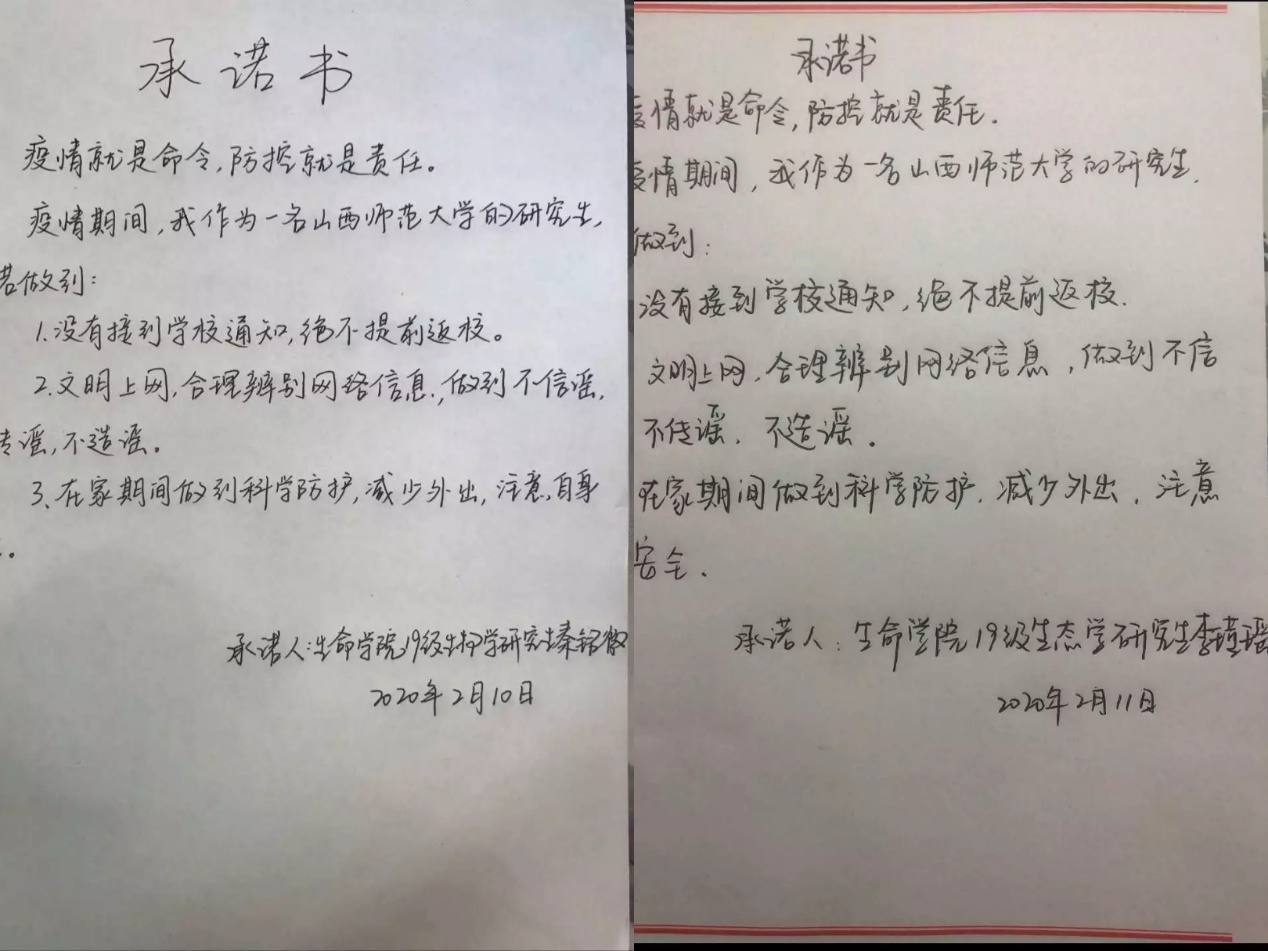 承诺书
疫情就是命令,防控就是责任。
疫情期间,我作为一名山西师范大学的研究生,
诺做到:
1.没有接到学校通知,绝不提前返校。
2.文明上网,合理辨别网络信息,做到不信谣,
传谣,不造谣。
3、在家期间做到科学防护,减少外出,注意自身
承诺人:生命学院19级生物学研究生秦
2020年2月10日
承诺书
疫情就是命令,防控就是责任.
疫情期间,我作为一名山西师范大学的研究生,
做到:
没有接到学校通知,绝不提前返校.
文明上网,合理辨别网络信息,做到不信
不传谣,不造谣。
在家期间做到科学防护,减少外出,注意
安全.
承诺人:生命学院19级生态学研究生李瑾瑶
2020年2月11日